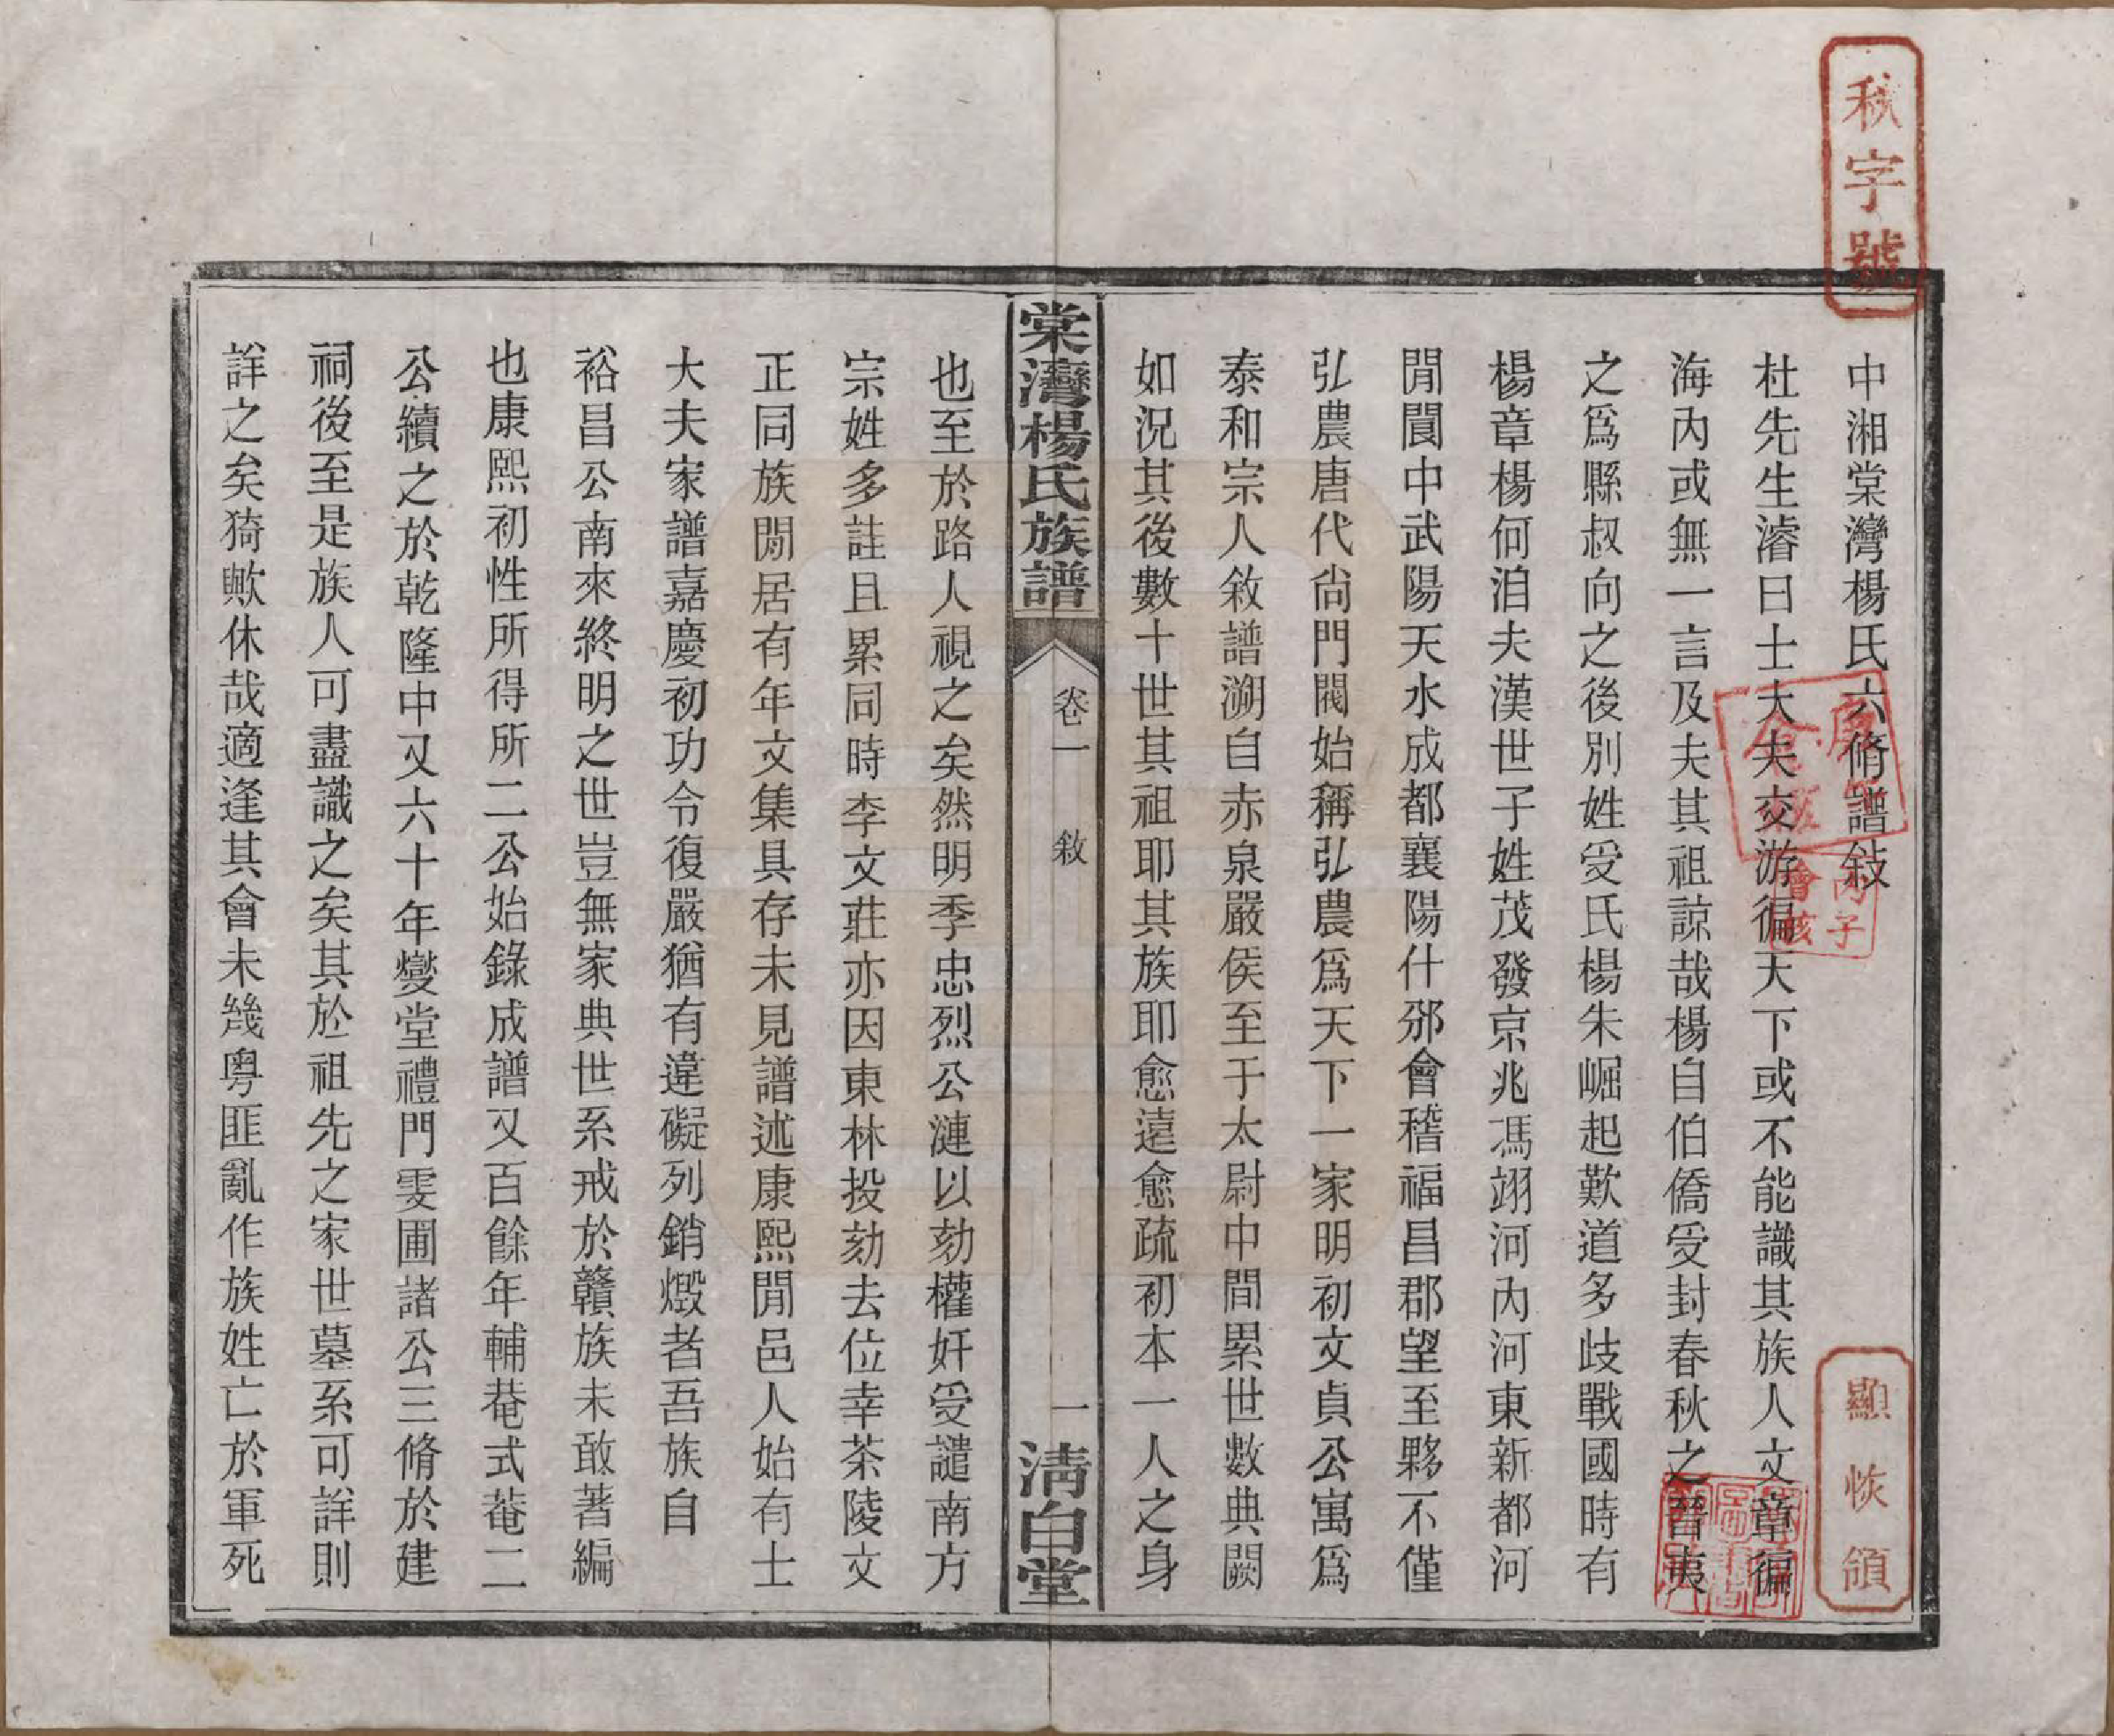 秋字號
中湘棠灣楊氏六脩譜敍
杜先生濬曰士大夫交游徧天下或不能識其族人文章徧
海內或無一言及夫其祖諒哉楊自伯僑受封春秋之晉夷
之爲縣叔向之後別姓受氏楊朱崛起歎道多歧戰國時有
楊章楊何洎夫漢世子姓茂發京兆馮翊河內河東新都河
閒閬中武陽天水成都襄陽什邡會稽福昌郡望至夥不僅
弘農唐代尙門閥始稱弘農爲天下一家明初文貞公寓爲
泰和宗人敘譜溯自赤泉嚴侯至于太尉中間累世數典闕
如況其後數十世其祖耶其族耶愈遠愈疏初本一人之身
棠灣楊氏族譜
卷一
敘
一
淸白堂
也至於路人視之矣然明季忠烈公漣以劾權奸受譴南方
宗姓多註且累同時李文莊亦因東林投劾去位幸茶陵文
正同族閒居有年文集具存未見譜述康熙閒邑人始有士
大夫家譜嘉慶初功令復嚴猶有違礙列銷燬者吾族自
裕昌公南來終明之世豈無家典世系戒於贛族未敢著編
也康熙初性所得所二公始錄成譜又百餘年輔菴式菴二
公續之於乾隆中又六十年燮堂禮門雯圃諸公三脩於建
祠後至是族人可盡識之矣其於祖先之家世墓系可詳則
詳之矣猗歟休哉適逢其會未幾粵匪亂作族姓亡於軍死
丙子
會
顯
恢
領